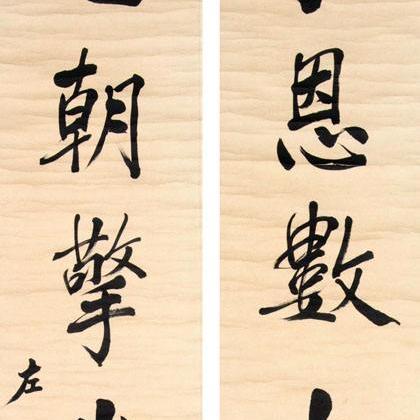 恩數
朝擎
左